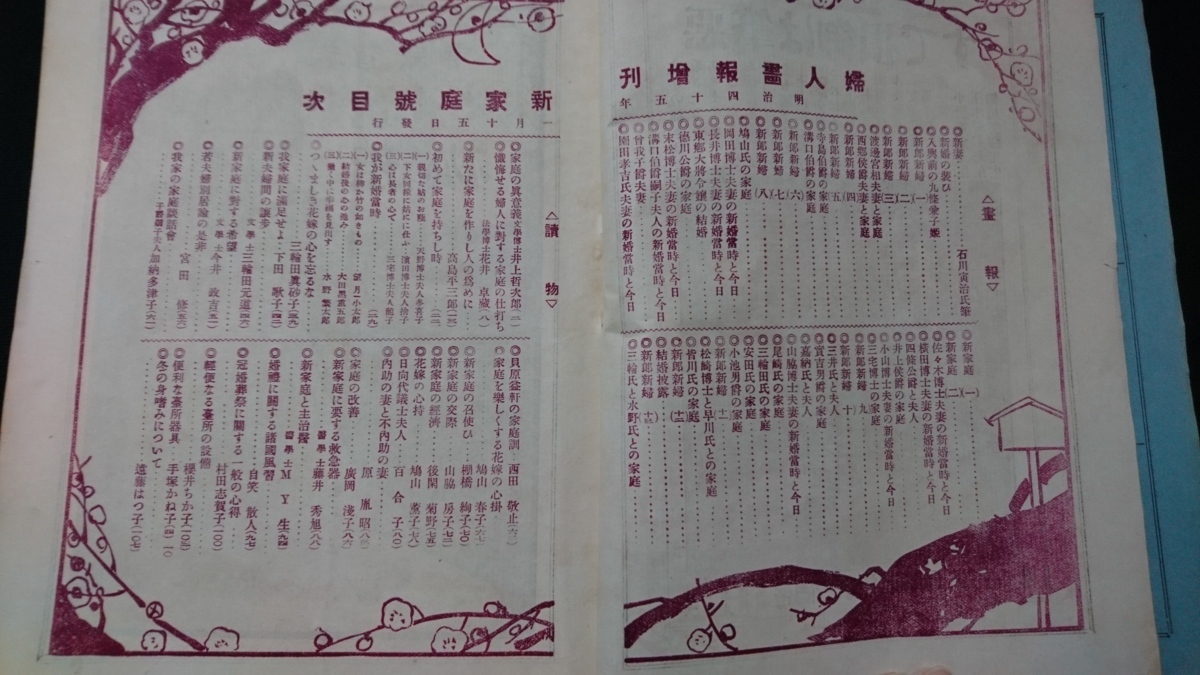 婦人畫報增刊
明治四十五年
△畫報▽
◎新妻 石川寅治氏筆
◎新婚の裝ひ
◎入輿前の九條 子姬
◎新郎新婦(一)
◎新郎新婦(二)
◎新郎新婦(三)
◎渡邊宮相夫妻と家庭
◎西鄕侯爵夫妻と家庭
◎新郎新婦(四)
◎新郎新婦(五)
◎寺島伯爵の家庭
◎溝口伯爵の家庭
◎新郎新婦(六)
◎新郎新婦(七)
◎新郎新婦(八)
◎鳩山氏の家庭
◎岡田博士夫妻の新婚當時と今日
◎長井博士夫妻の新婚當時と今日
◎東鄕大將令孃の結婚
◎德川公爵の家庭
◎末松博士夫妻の新婚當時と今日
◎溝口伯爵嗣子夫人の新婚當時と今日
◎曾我子爵夫妻
◎園田孝吉氏夫妻の新婚當時と今日
◎新家庭(一)
◎新家庭(二)
◎佐々木博士夫妻の新婚當時と今日
◎橫田博士夫妻の新婚當時と今日
◎四條公爵と夫人
◎井上侯爵の家庭
◎小山博士夫妻の新婚當時と今日
◎三宅博士の家庭
◎新郎新婦(九)
◎新郎新婦(十)
◎三井氏と夫人
◎實吉男爵の家庭
◎嘉納氏と夫人
◎山脇博士夫妻の新婚當時と今日
◎尾崎氏の家庭
◎三輪田氏の家庭
◎安田氏の家庭
◎小池男爵の家庭
◎新郎新婦(十一)
◎松崎博士と早川氏との家庭
◎皆川氏の家庭
◎新郎新婦(十二)
◎結婚披露
◎新郎新婦(十三)
◎三輪氏と水野氏との家庭
新家庭號目次
一月十五日發行
△讀物▽
◎家庭の眞意義 文學博士 井上哲次郎(二)
◎懺悔せる婦人に對する家庭の仕打ち 法學博士 花井卓藏(八)
◎新たに家庭を作りし人の爲めに 高島平三郎(一三)
◎初めて家庭を持ちし時(二二)
(一)親切な姑のお蔭 天野博士夫人多喜子
(二)下女同樣に姑に仕ふ 濱田博士夫人捨子
(三)心は長者の心で 三宅博士夫人龍子
◎我が新婚當時(二九)
(一)妻は柳か竹の如きもの 望月小太郎
(二)結婚後の心の進み 大田黑重五郎
(三)勞働の中に幸福を見出す 水野繁太郎
◎つゝましき花嫁の心を忘るな 三輪田眞砂子(三九)
◎我家庭に滿足せよ 下田歌子(四二)
◎新夫婦間の讓步 文學士 三輪田元道(四六)
◎新家庭に對する希望 文學士 今井政吉(五一)
◎若夫婦別居論の是非 宮田修(五六)
◎我家の家庭談話會 子爵嗣子夫人 加納多津子(六一)
◎貝原益軒の家庭訓 西田敬止(六三)
◎家庭を樂しくする花嫁の心掛 鳩山春子(六七)
◎新家庭の召使ひ 棚橋絢子(七〇)
◎新家庭の交際 山脇房子(七三)
◎新家庭の經濟 後閑菊野(七五)
◎花嫁の心持 鳩山薰子(七六)
◎日向代議士夫人 百合子(八〇)
◎內助の妻と不內助の妻 原胤昭(八三)
◎家庭の改善 廣岡淺子(八六)
◎新家庭に要する救急器 醫學士 藤井秀旭(八八)
◎新家庭と主治醫 醫學士 MY生(九四)
◎婚禮に關する諸國風習 自笑散人(九七)
◎冠婚葬祭に關する一般の心得 村田志賀子(一〇〇)
◎輕便なる臺所の設備 櫻井ちか子(一〇三)
◎便利な臺所器具 手塚かね子
◎冬の身嗜みについて 遠藤はつ子(一〇七)